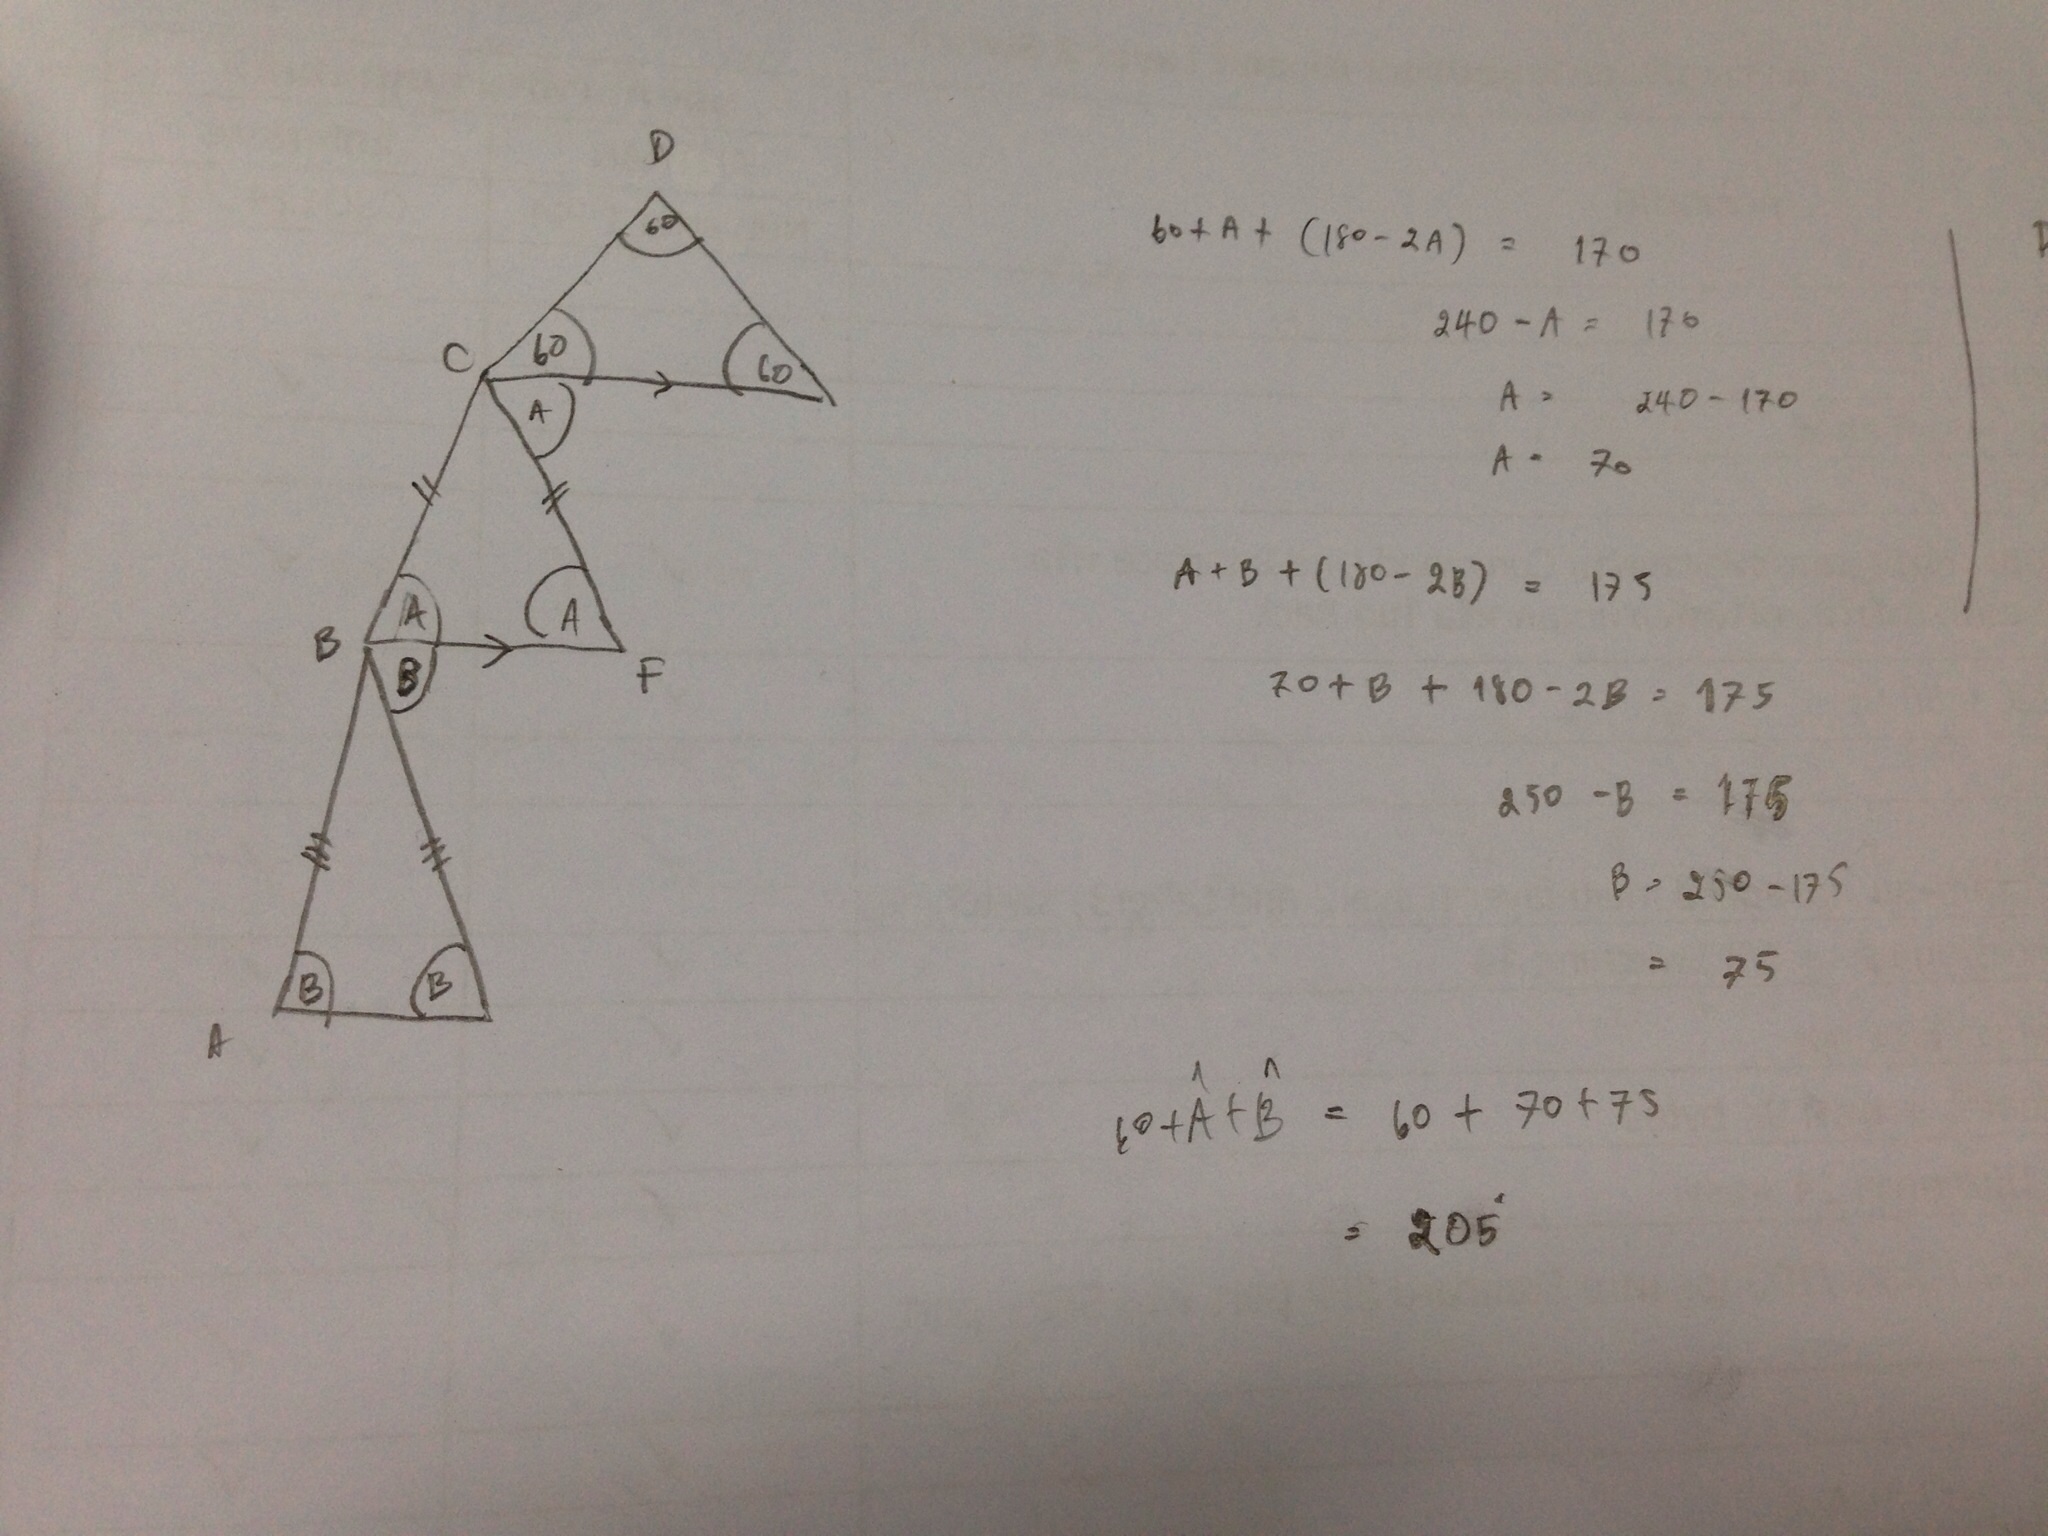 D
60
C
60
60
A
A
A
B
F
B
B
B
A
60 + A + (180 - 2A) = 170
240 - A = 170
A = 240 - 170
A = 70
A + B + (180 - 2B) = 175
70 + B + 180 - 2B = 175
250 - B = 175
B = 250 - 175
= 75
60 + Â + B̂ = 60 + 70 + 75
= 205